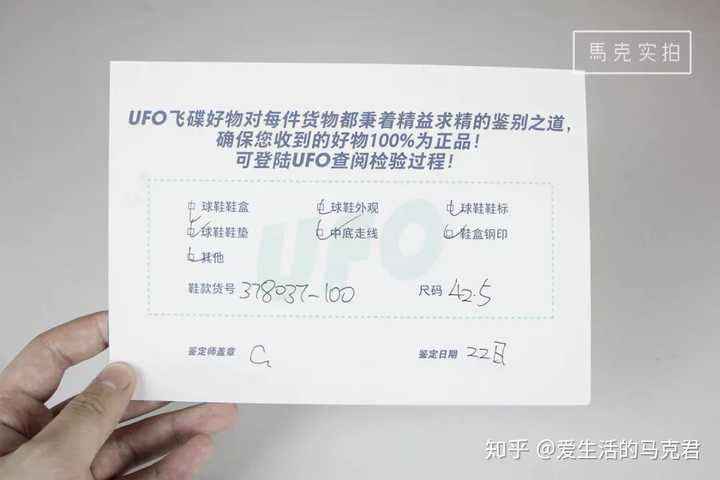 馬克实拍
UFO飞碟好物对每件货物都秉着精益求精的鉴别之道,
确保您收到的好物100%为正品!
可登陆UFO查阅检验过程!
球鞋鞋盒 球鞋外观 球鞋鞋标
球鞋鞋垫 中底走线 鞋盒钢印
其他
UFO
鞋款货号 378037-100 尺码 42.5
鉴定师盖章 G 鉴定日期 22日
知乎 @爱生活的马克君